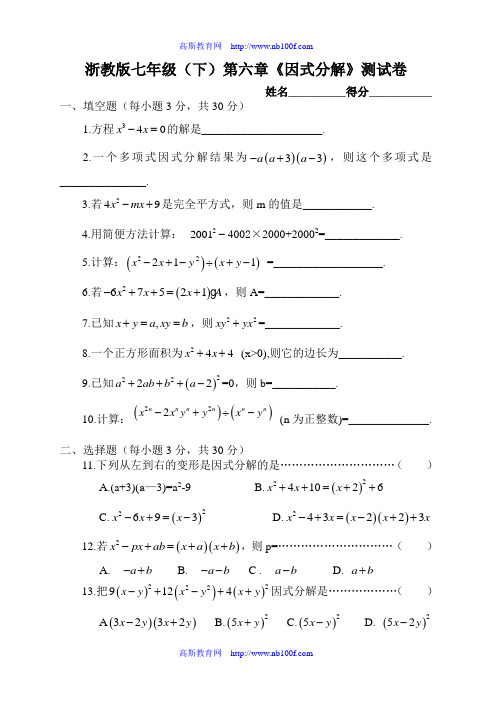 高斯教育网 http://www.nb100f.com
浙教版七年级（下）第六章《因式分解》测试卷
姓名__________得分___________
一、填空题（每小题3分，共30分）
1.方程x³－4x＝0的解是_____________________.
2.一个多项式因式分解结果为－a(a+3)(a−3)，则这个多项式是
_______________.
3.若4x²−mx+9是完全平方式，则m的值是____________.
4.用简便方法计算： 2001²－4002×2000+2000²=_____________.
5.计算：(x²−2x+1−y²)÷(x+y−1) =___________________.
6.若−6x²+7x+5=(2x+1)gA，则A=_____________.
7.已知x+y=a,xy=b，则xy²+yx²=_____________.
8.一个正方形面积为x²+4x+4 (x>0),则它的边长为___________.
9.已知a²+2ab+b²+(a−2)²=0，则b=___________.
10.计算：(x²ⁿ−2xⁿyⁿ+y²ⁿ)÷(xⁿ−yⁿ) (n为正整数)=______________.
二、选择题（每小题3分，共30分）
11.下列从左到右的变形是因式分解的是…………………………（ ）
A.(a+3)(a—3)=a²-9 B.x²+4x+10=(x+2)²+6
C.x²−6x+9=(x−3)² D.x²−4+3x=(x−2)(x+2)+3x
12.若x²−px+ab=(x+a)(x+b)，则p=…………………………（ ）
A. −a+b B. −a−b C . a−b D. a+b
13.把9(x−y)²+12(x²−y²)+4(x+y)²因式分解是………………（ ）
A(3x−2y)(3x+2y) B.(5x+y)² C.(5x−y)² D. (5x−2y)²
高斯教育网 http://www.nb100f.com